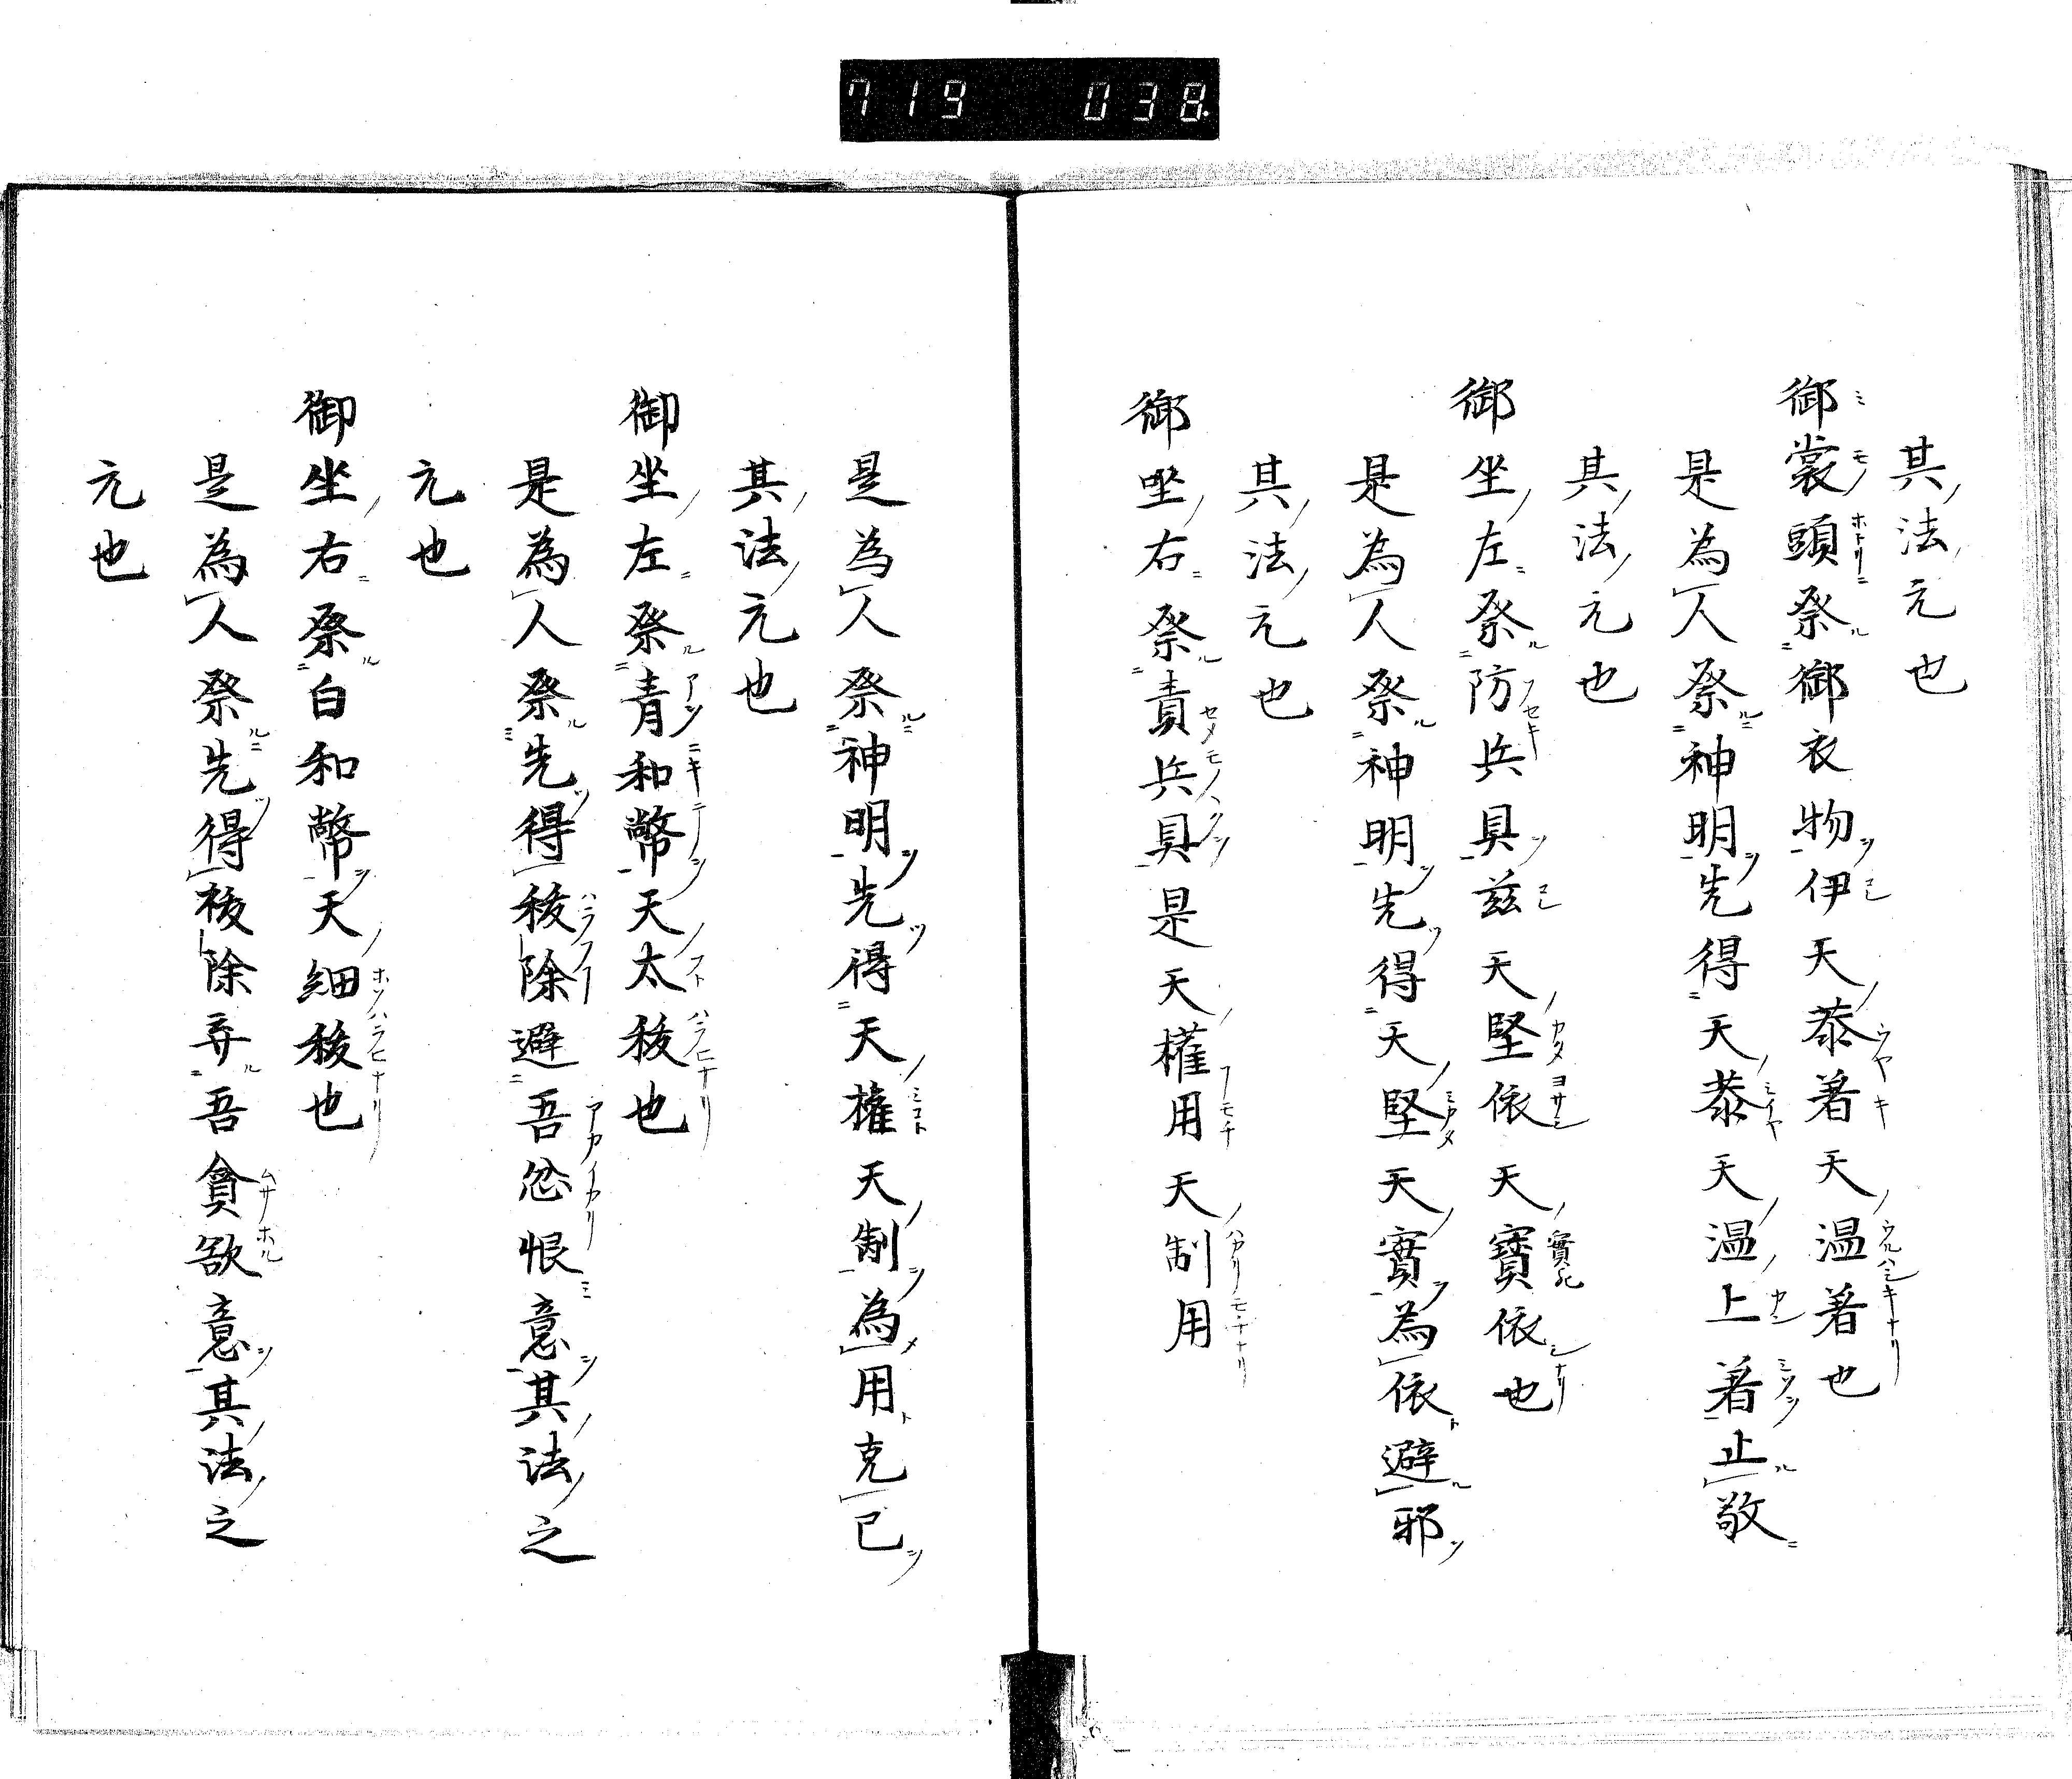 719 038
其法元也
御裳頭祭御衣物伊天𳟭著天温著也
是為人祭神明先得天𳟭天温上著止敬
其法元也
御坐左祭防兵具茲天堅依天寶依也
是為人祭神明先得天堅天寳為依避邪
其法元也
御坐右祭責兵具是天權用天制用
是為人祭神明先得天權天制為用克已
其法元也
御坐左祭青和幣天太祓也
是為人祭先得祓除避吾忿恨意其法之
元也
御坐右祭白和幣天細祓也
是為人祭先得祓除弃吾貪欲意其法之
元也